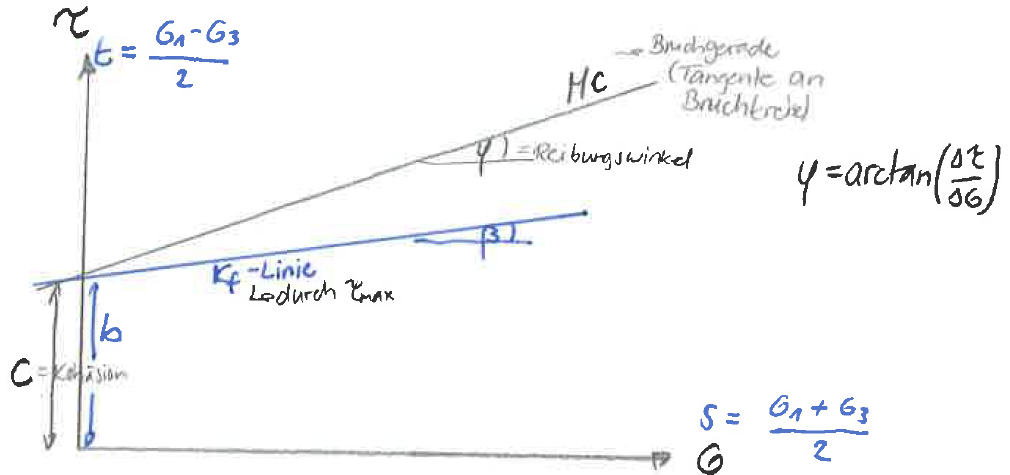 τ
t = (σ1 - σ3) / 2
→ Bruchgerade
(Tangente an
Bruchkreise)
MC
φ = Reibungswinkel
φ = arctan(Δτ/Δσ)
β
Kf-Linie
↳ durch τmax
b
C = Kohäsion
s = (σ1 + σ3) / 2
σ